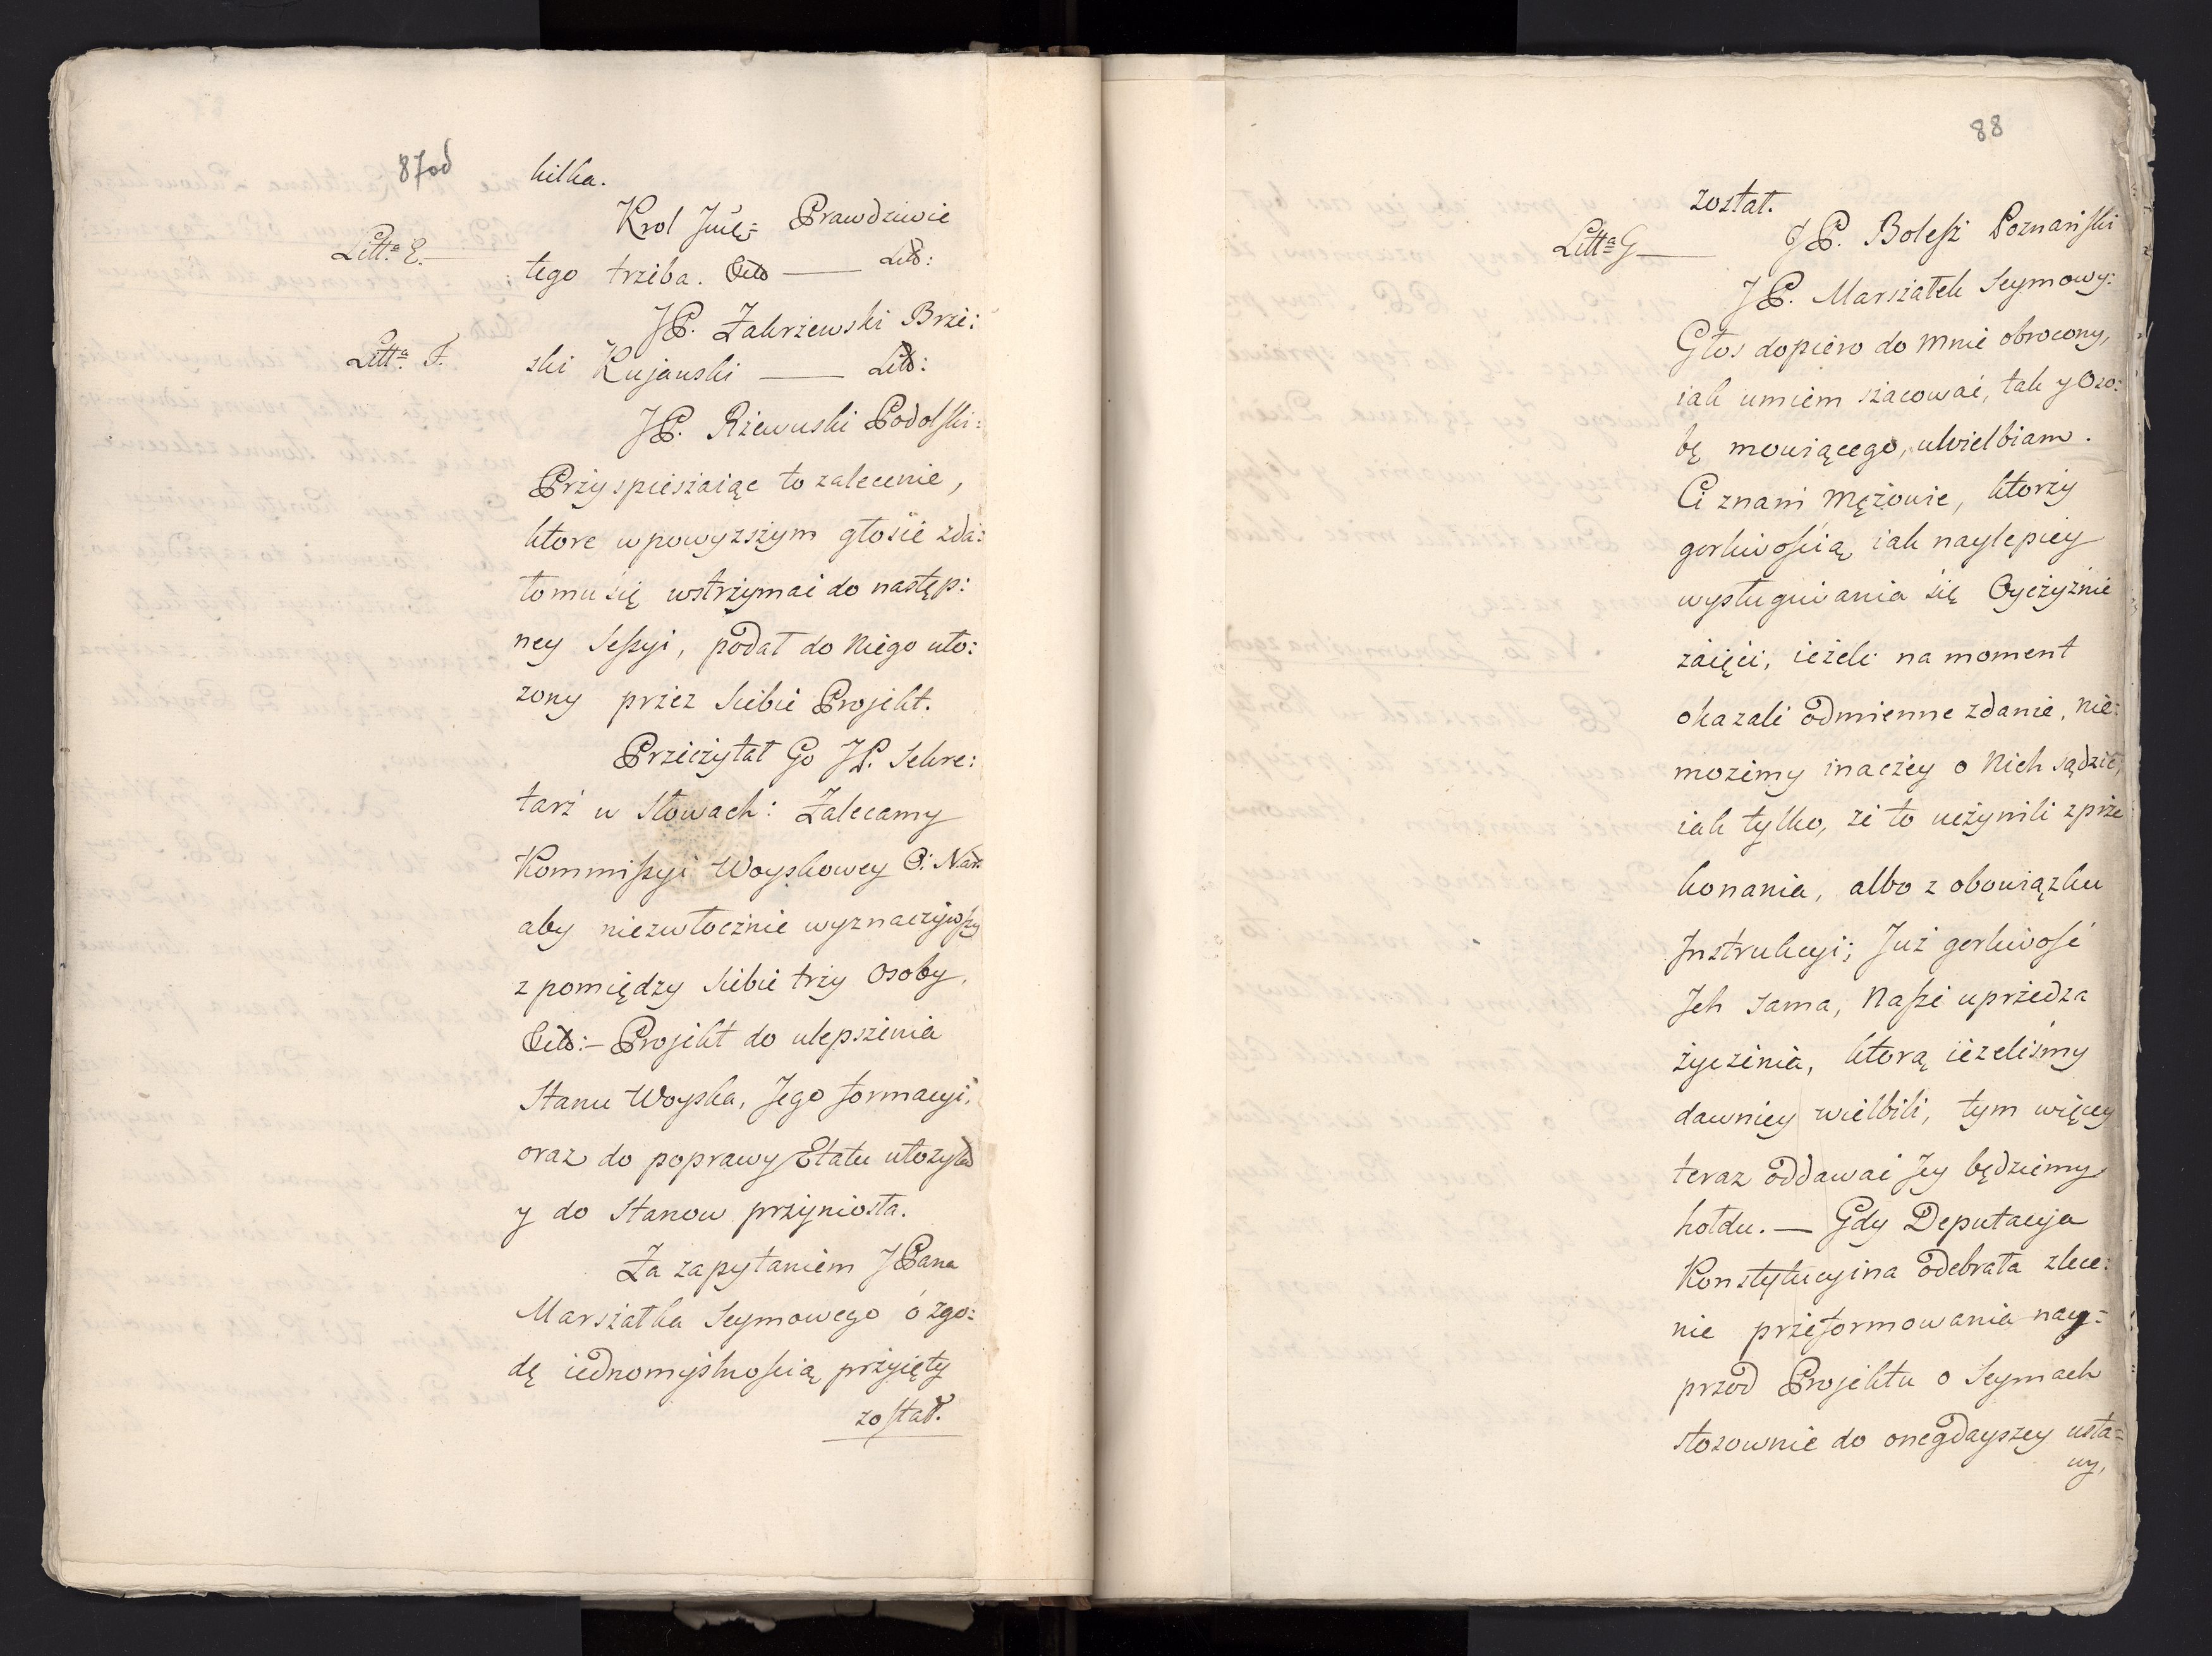 87od
kilka.
Krol Jmć= Prawdziwie
Litt.ª E.
tego trzeba. Etc —— Litt:
JP. Zakrzewski Brze:
Litt.ª F.
ski Kujawski —— Litt:
JP. Rzewuski Podolski:
Przyspieszaiąc to zalecenie,
ktore w powyzszym głosie zda:
ło mu się wstrzymać do następ:
ney Sessyi, podał do Niego uło:
zony przez Siebie Projekt.
Przeczytał Go JP. Sekre:
tarz w Słowach: Zalecamy
Kommissyi Woyskowey O: Nar:
aby niezwłocznie wyznaczywszy
z pomiędzy Siebie trzy Osoby,
Etc:— Projekt do ulepszenia
Stanu Woyska, Jego formacyi,
oraz do poprawy Etatu ułozyła
y do Stanow przyniosła.
Za zapytaniem JPana
Marszałka Seymowego o zgo:
dę iednomyślnością przyięty
został.
88
został.
Litt.ª G —— JP. Bolesz Poznański
JP. Marszałek Seymowy:
Głos dopiero do mnie obrocony,
iak umiem szacować, tak y Oso:
bę mowiącego, uwielbiam.
Ci znani Mężowie, ktorzy
gorliwością iak naylepiey
wysługiwania się Oyczyznie
zaięci, ieżeli na moment
okazali odmienne zdanie, nie:
mozemy inaczey o Nich sądzić,
iak tylko, ze to uczynili z prze
konania, albo z obowiązku
Instrukcyi; Już gorliwość
Ich sama, Nasze uprzedza
życzenia, ktorą ieżelismy
dawniey wielbili, tym więcey
teraz oddawać Jey będziemy
hołdu. — Gdy Deputacya
Konstytucyina odebrała zlece:
nie przeformowania nay=
przod Projektu o Seymach
stosownie do onegdayszey usta=
wy,